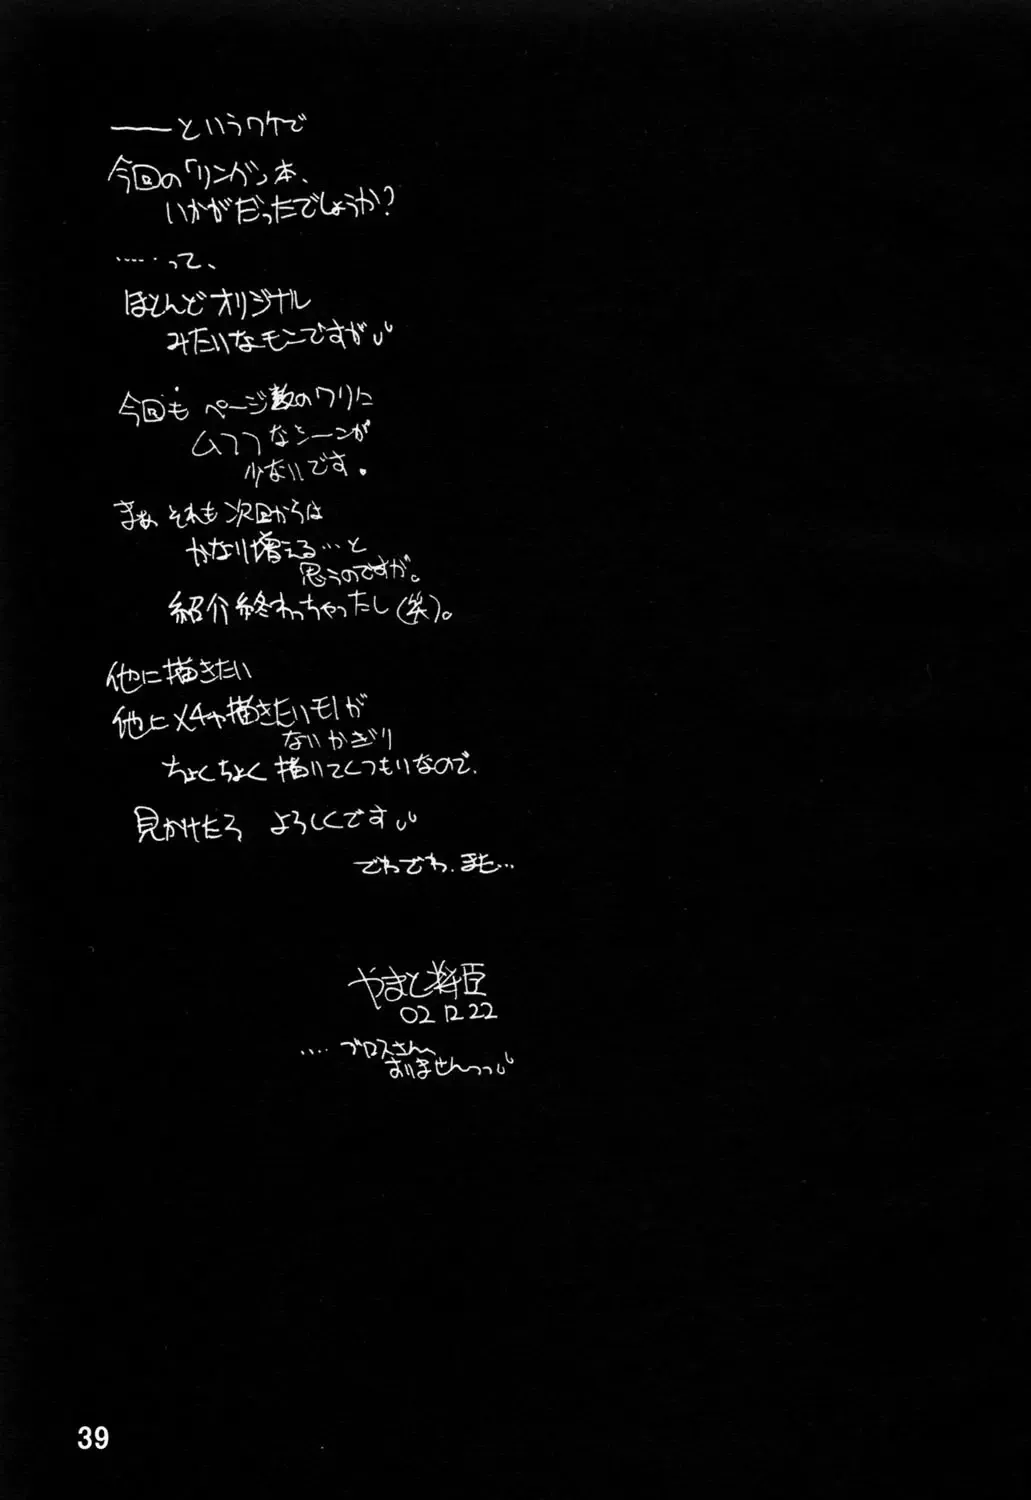 ――というワケで
今回の「リンガ」本、
いかがだったでしょうか？
……って、
ほとんどオリジナル
みたいなモンですが
今回も ページ数のワリに
ムフフなシーンが
少ないです。
まぁ それも次回からは
かなり増える…と
思うのですが。
紹介終わっちゃったし(笑)。
他に描きたい
他にメチャ描きたいモノが
ないかぎり
ちょくちょく描いてくつもりなので、
見かけたら よろしくです
でわでわ、また…
やまと
02 12 22
…‥ ブロスさん、
おりませんっっ
39